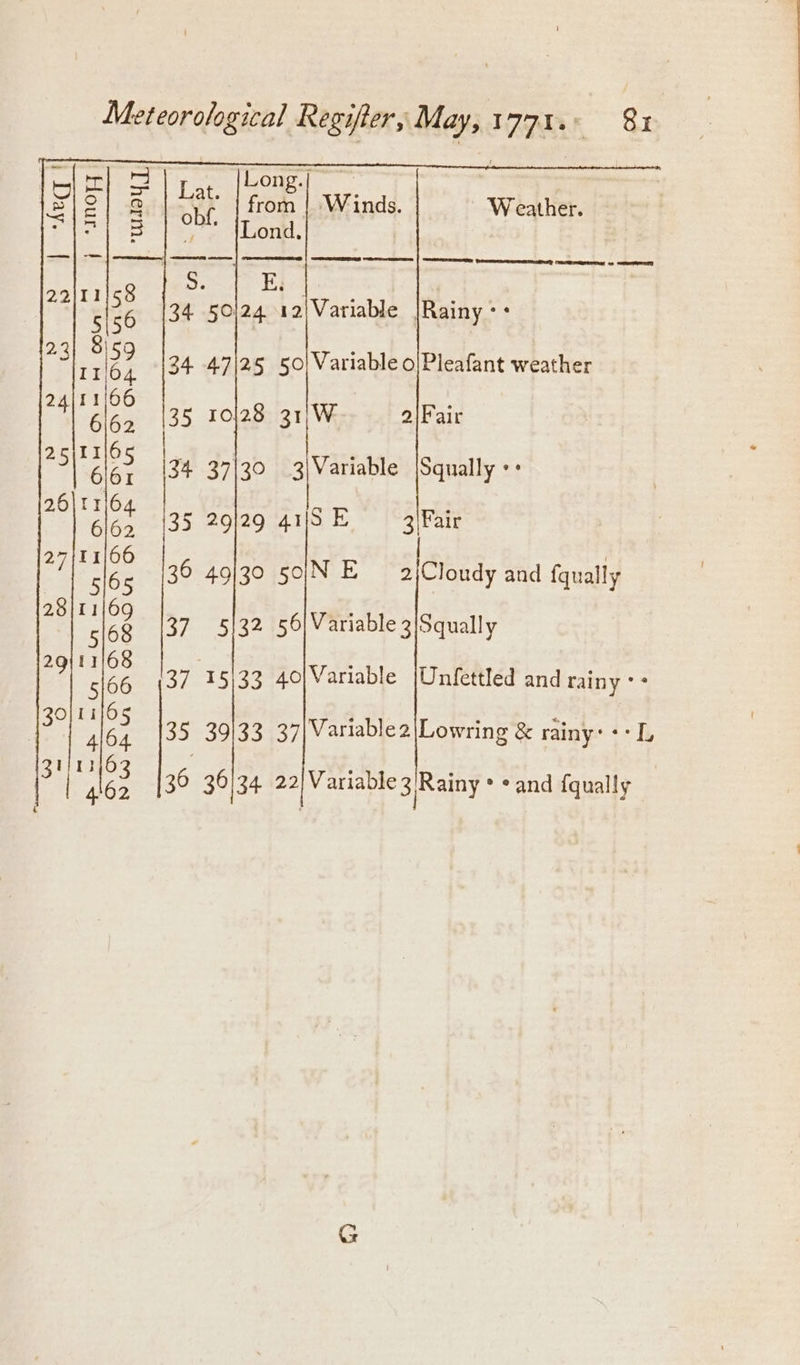 Meteorological Regiſter, May, 1771. 81
Day. | Hour. | Therm. | Lat. obſ. | Long. from Lond. | Winds. | Weather.
S. | E.
22 | 11 | 58
5 | 56 | 34 50 | 24 12 | Variable | Rainy · ·
23 | 8 | 59
11 | 64 | 34 47 | 25 50 | Variable 0 | Pleaſant weather
24 | 11 | 66
6 | 62 | 35 10 | 28 31 | W 2 | Fair
25 | 11 | 65
6 | 61 | 34 37 | 30 3 | Variable | Squally · ·
26 | 11 | 64
6 | 62 | 35 29 | 29 41 | S E 3 | Fair
27 | 11 | 66
5 | 65 | 36 49 | 30 50 | N E 2 | Cloudy and ſqually
28 | 11 | 69
5 | 68 | 37 5 | 32 56 | Variable 3 | Squally
29 | 11 | 68
5 | 66 | 37 15 | 33 40 | Variable | Unſettled and rainy · ·
30 | 11 | 65
4 | 64 | 35 39 | 33 37 | Variable 2 | Lowring & rainy · · · L
31 | 11 | 63
4 | 62 | 36 36 | 34 22 | Variable 3 | Rainy · · and ſqually
G